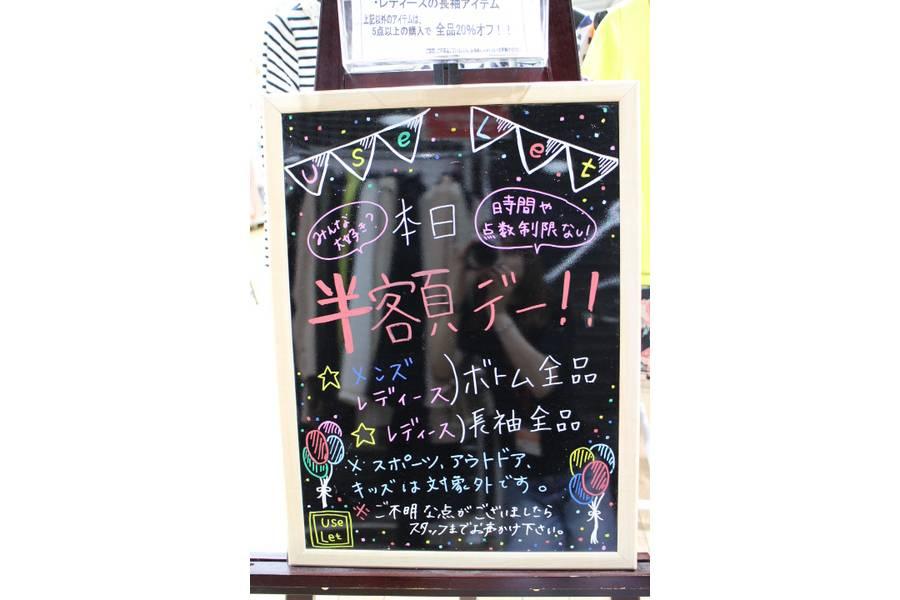 ・レディースの長袖アイテム
上記以外のアイテムは、
5点以上の購入で 全品20%オフ！！
Use Let
みんな
大好き？
本日
時間や
点数制限ない！
半額デー！！
☆ メンズ
レディース
) ボトム全品
☆ レディース) 長袖全品
× スポーツ、アウトドア、
キッズは対象外です。
※ ご不明な点がございましたら
スタッフまでお声かけ下さい。
Use
Let